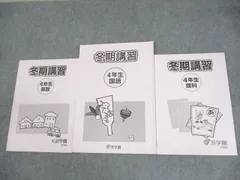 冬期講習
4年生
算数
浜学園
冬期講習
4年生
国語
浜学園
冬期講習
4年生
理科
浜学園